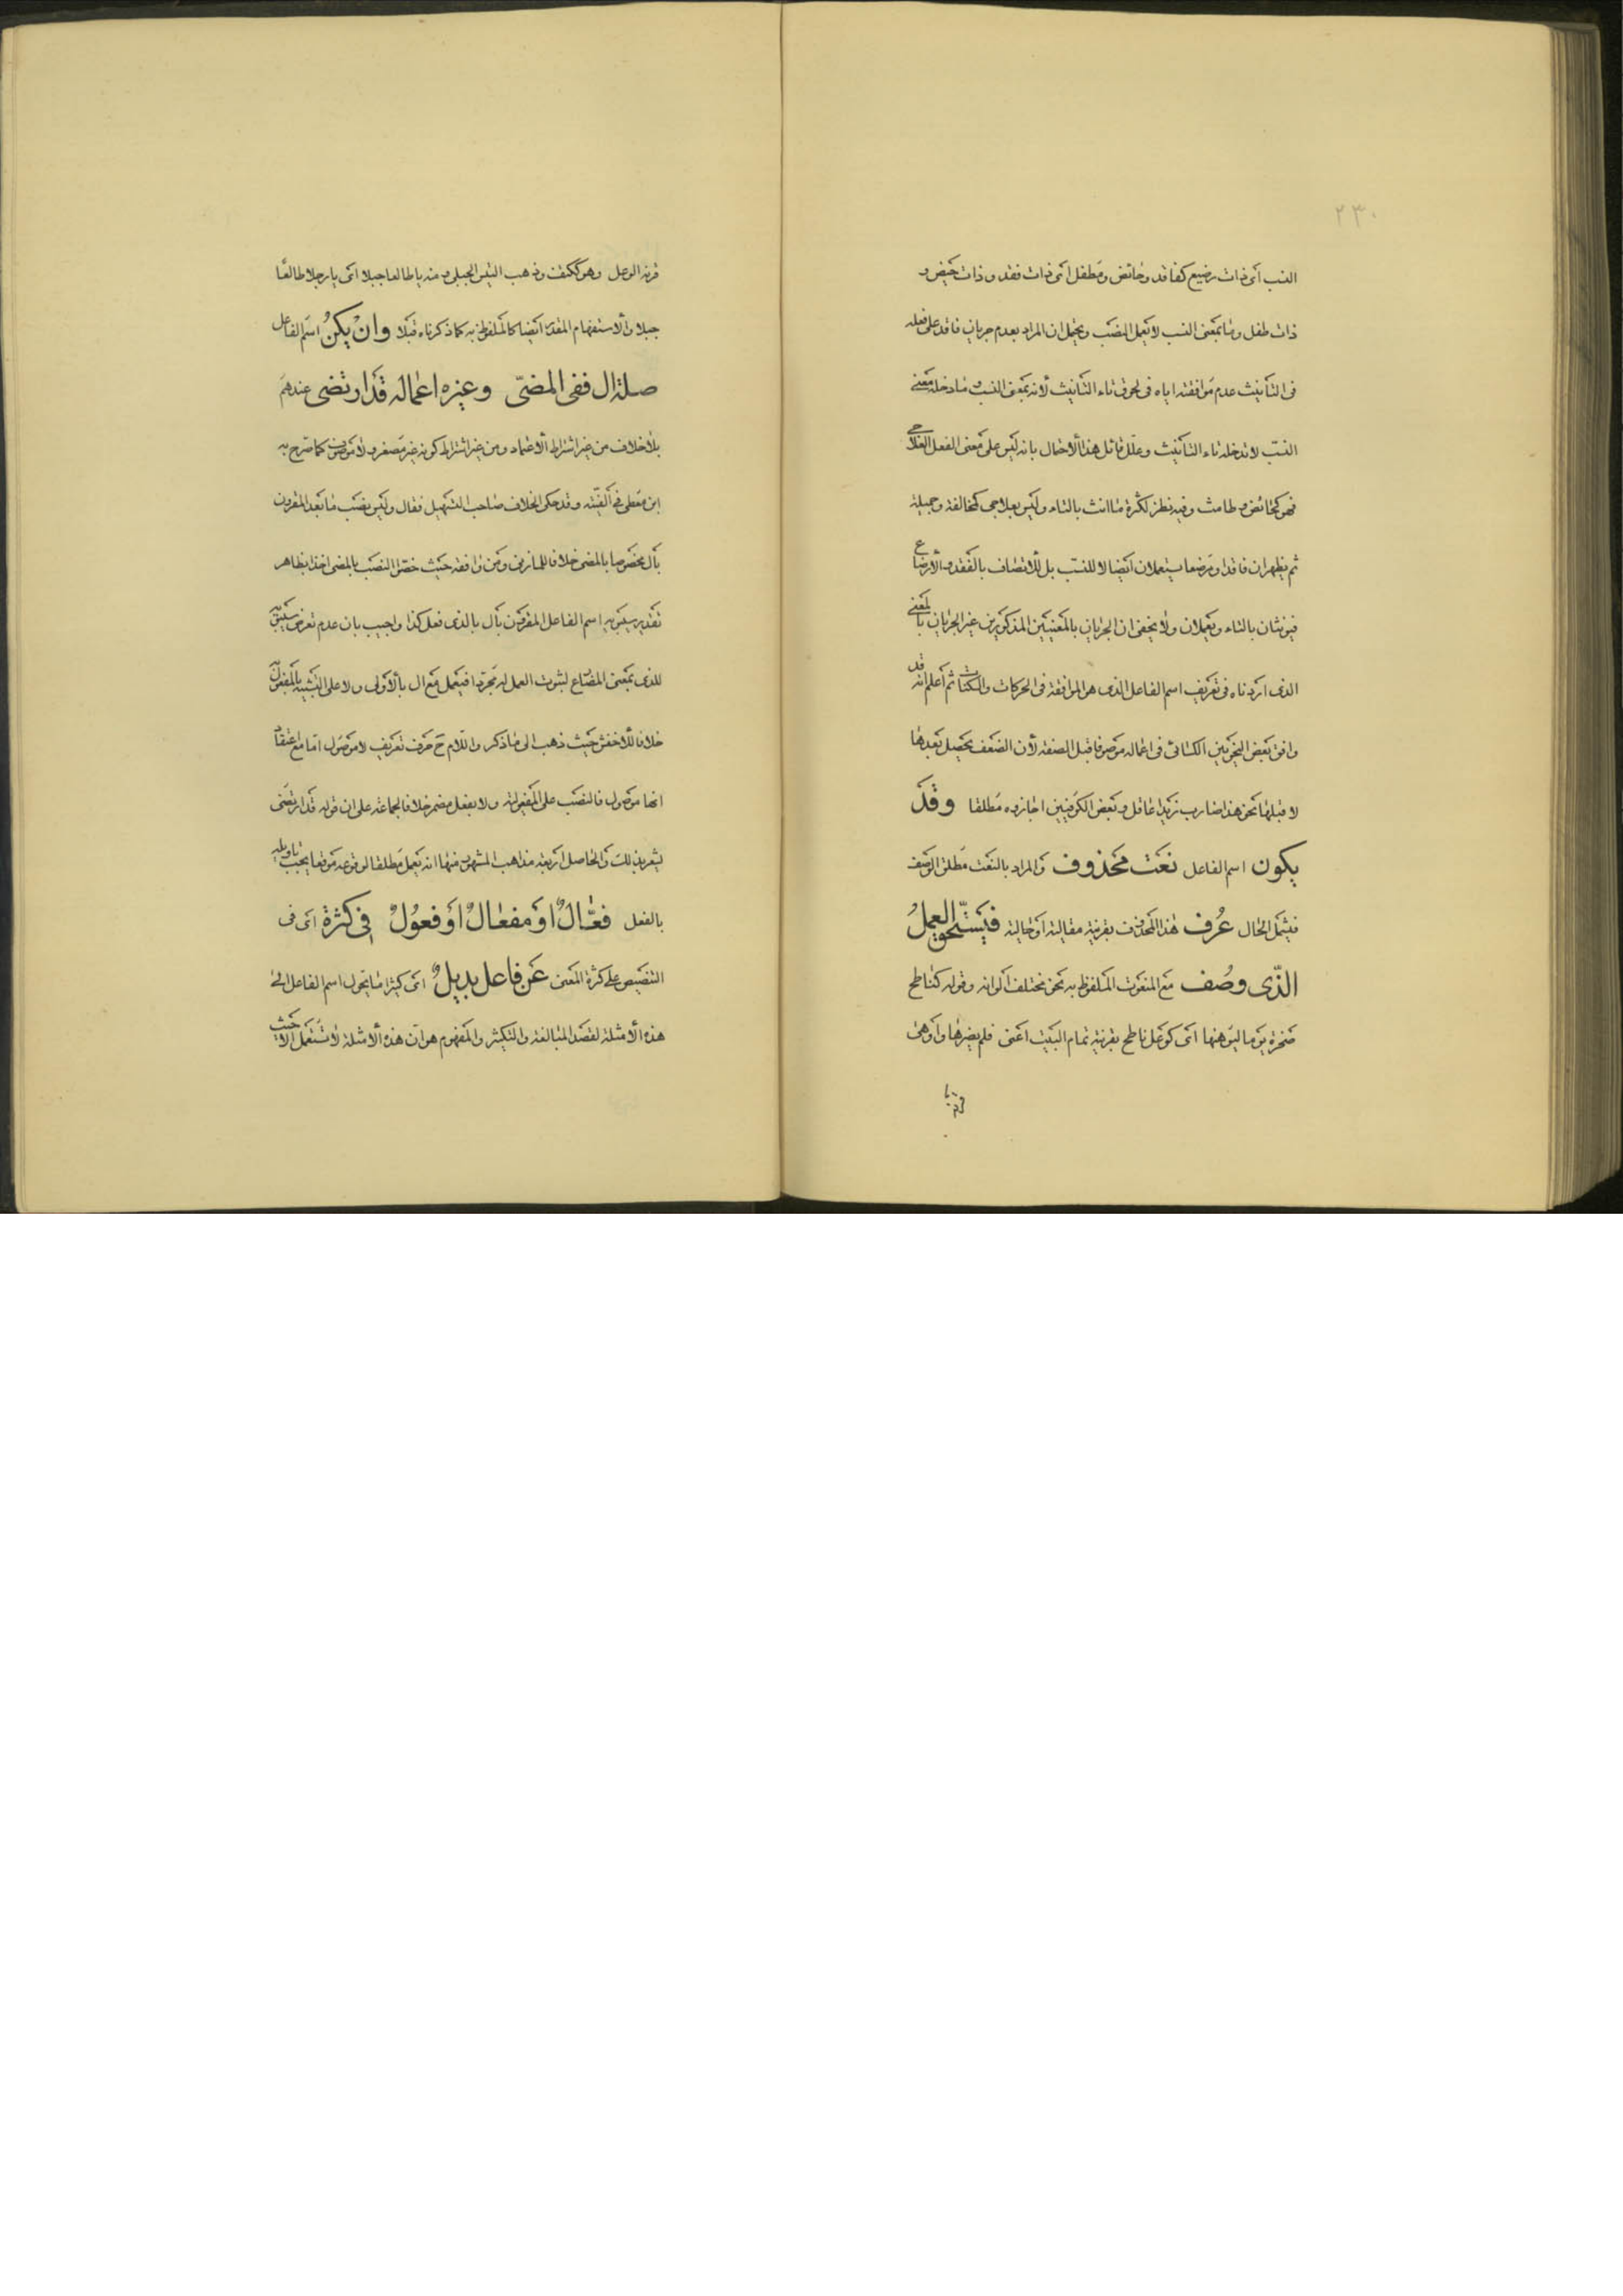 ٢٣٠
النسب أى ذات رضيع كفاقد وحائض ومطفل أى ذات فقد وذات حيض و
ذات طفل وما بمعنى النسب لا يعمل النصب ويحتمل ان المراد بعدم جريان فاقد على فعله
فى التأنيث عدم موافقته اياه فى لحوق تاء التأنيث لانه بمعنى النسب وما دخله معنى
النسب لا تدخله تاء التأنيث وعلل قائل هذا الاحتمال بانه ليس على معنى الفعل العلاجى
فهو كحائض وطامث وفيه نظر لكثرة ما انث بالتاء وليس بعلاجى كمخالفة وجميلة
ثم يظهر ان فاقدا ومرضعا يستعملان أيضا لا للنسب بل للاتصاف بالفقد والأرضاع
فيؤنثان بالتاء ويعملان ولا يخفى ان الجريان بالمعنيين المذكورين غير الجريان بالمعنى
الذى اردناه فى تعريف اسم الفاعل الذى هو الموافقة فى الحركات والسكنات ثم اعلم انه قد
وافق بعض البحريين الكسائى فى اعماله موصوفا قبل الصفة لأن الضعف يحصل بعدها
لا قبلها نحو هذا ضارب زيدا عاقل وبعض الكوفيين اجازوه مطلقا وقد
يكون اسم الفاعل نعت محذوف والمراد بالنعت مطلق الوصف
فيشمل الحال عُرف هذا المحذوف بقرينة مقالية أو حالية فيستحق العمل
الذى وصف مع المنعوت الملفوظ به نحو مختلف الوانه وقوله كناطح
صخرة يوما ليوهنها اى كوعل ناطح بقرينة تمام البيت اعنى فلم يضرها واوهى
قرنه الوعل وهو ككتف وذهب التيس الجبلى ومنه يا طالعا جبلا اى يا رجلا طالعًا
جبلا والاستفهام المقدر ايضا كالملفوظ به كما ذكرناه قبلا وان يكن اسم الفاعل
صلة ال ففى المضىّ وغيره اعماله قد ارتضى عندهم
بلا خلاف من غير اشتراط الاعتماد ومن غير اشتراط كونه غير مصغر ولا موصوف كما صرح به
ابن معطى فى ألفيته وقد حكى الخلاف صاحب التسهيل فقال وليس نصب ما بعد المقرون
بأل مخصوصا بالمضى خلافا للمازنى ومن وافقه حيث خصّوا النصب بالمضى اخذا بظاهر
تقدير سيبويه اسم الفاعل المقرون بأل بالذى فعل كذا واجيب بان عدم تعرض سيبويه
للذى بمعنى المضارع لثبوت العمل له مجردا فيعمل مع ال بالاولى ولا على التشبيه بالمفعول
خلافا للاخفش حيث ذهب الى ما ذكر واللام ح حرف تعريف لا موصول اما مع اعتقاد
انها موصول فالنصب على المفعولية ولا بفعل مضمر خلافا لجماعة على ان قوله قد ارتضى
يشعر بذلك والحاصل اربعة مذاهب المشهور منها انه يعمل مطلقا لوقوعه موقعا يجب تاويله
بالفعل فعّالٌ او مفعالٌ او فعولٌ فى كثرة اى فى
التنصيص على كثرة المعنى عن فاعل بديلٌ اى كثيرا ما يحول اسم الفاعل الى
هذه الأمثلة لقصد المبالغة والتكثير والمفهوم هو أن هذه الامثلة لا تستعمل الا حيث